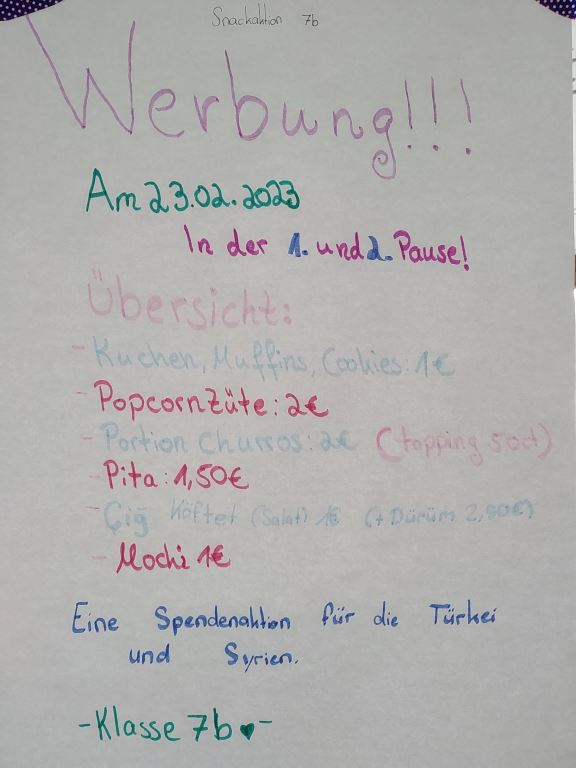 Snackaktion 7b
Werbung!!!
Am 23.02.2023
In der 1. und 2. Pause!
Übersicht:
- Kuchen, Muffins, Cookies: 1€
- Popcorn Züte: 2€
- Portion Churros: 2€ (topping 50ct)
- Pita: 1,50€
- Çiğ Köftet (Salat) 1€ (+ Dürüm 2,50€)
- Mochi 1€
Eine Spendenaktion für die Türkei
und Syrien.
- Klasse 7b ♥ -